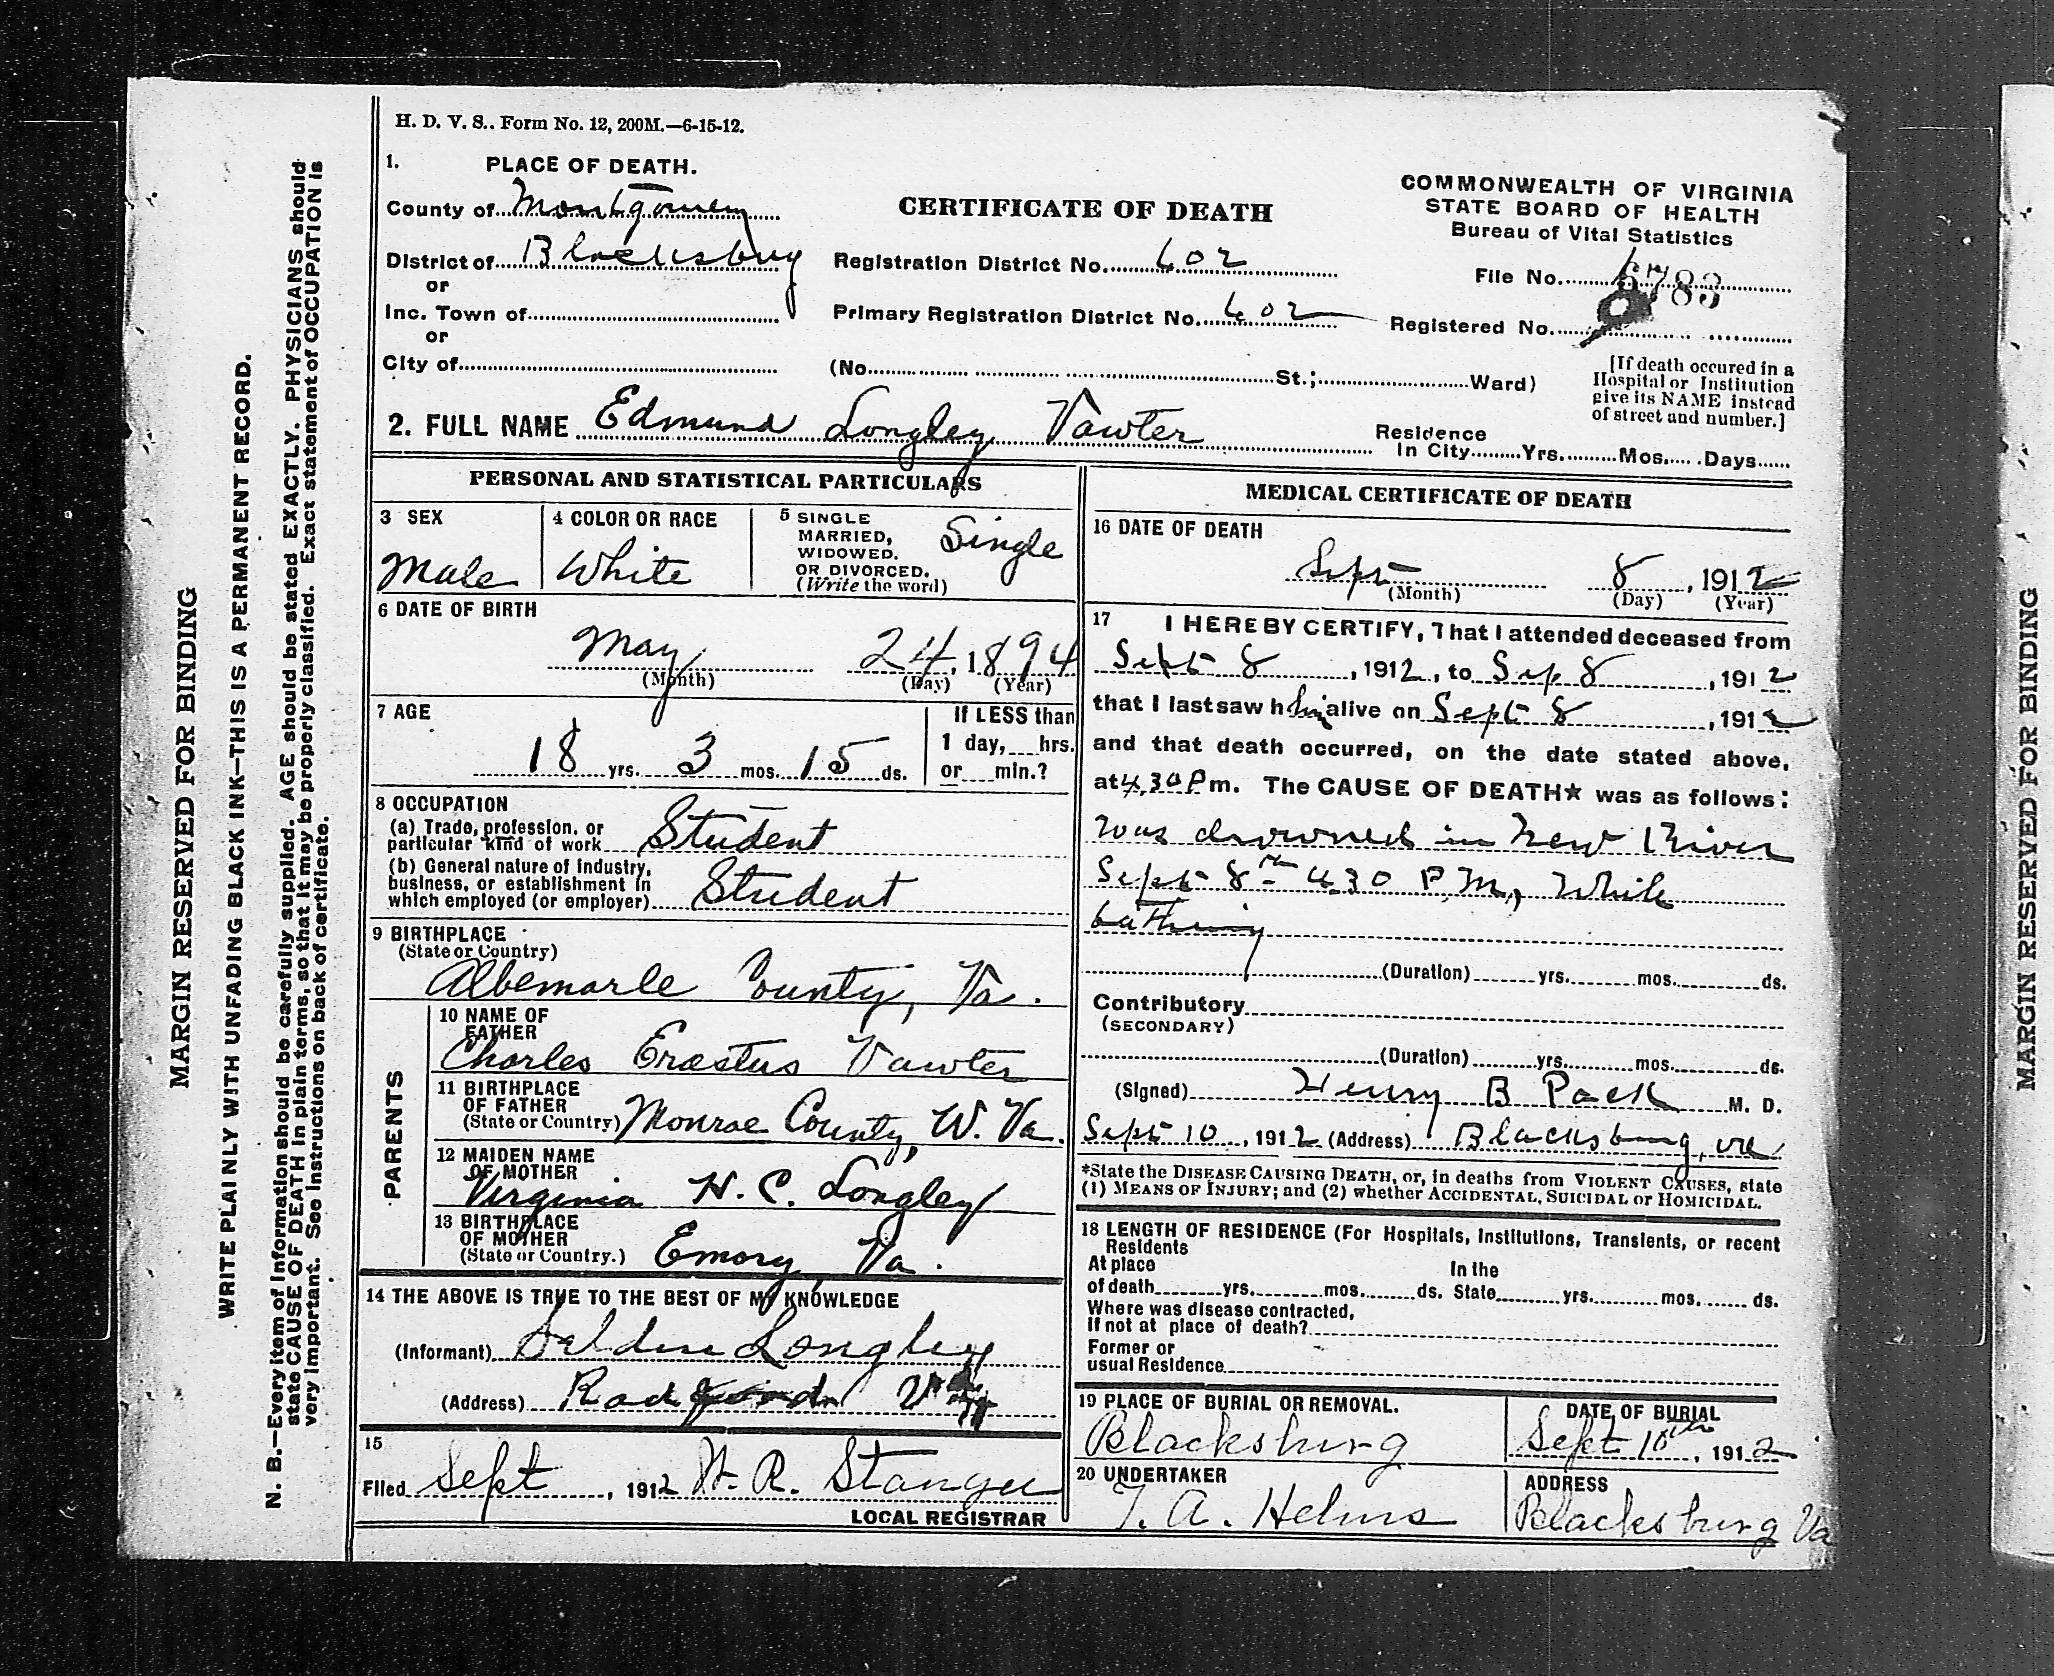 H. D. V. S.. Form No. 12, 200M.—6-15-12.
1. PLACE OF DEATH.
County of Montgomery
District of Blacksburg
or
Inc. Town of
or
City of
CERTIFICATE OF DEATH
Registration District No. 602
Primary Registration District No. 602
(No. St.; Ward)
COMMONWEALTH OF VIRGINIA
STATE BOARD OF HEALTH
Bureau of Vital Statistics
File No. 6783
Registered No.
[If death occured in a
Hospital or Institution
give its NAME instead
of street and number.]
2. FULL NAME Edmund Longley Vawter
Residence
In City Yrs. Mos. Days
PERSONAL AND STATISTICAL PARTICULARS
3 SEX
Male
4 COLOR OR RACE
White
5 SINGLE
MARRIED,
WIDOWED.
OR DIVORCED.
(Write the word)
Single
6 DATE OF BIRTH
May 24, 1894
(Month) (Day) (Year)
7 AGE
18 yrs. 3 mos. 15 ds.
If LESS than
1 day, hrs.
or min.?
8 OCCUPATION
(a) Trade, profession, or
particular kind of work Student
(b) General nature of industry,
business, or establishment in
which employed (or employer) Student
9 BIRTHPLACE
(State or Country)
Albemarle County, Va.
PARENTS
10 NAME OF
FATHER
Charles Erastus Vawter
11 BIRTHPLACE
OF FATHER
(State or Country) Monroe County, W. Va.
12 MAIDEN NAME
OF MOTHER
Virginia H. C. Longley
13 BIRTHPLACE
OF MOTHER
(State or Country.) Emory, Va.
14 THE ABOVE IS TRUE TO THE BEST OF MY KNOWLEDGE
(Informant) Selden Longley
(Address)
15
Filed Sept, 1912 W. R. Stanger
LOCAL REGISTRAR
MEDICAL CERTIFICATE OF DEATH
16 DATE OF DEATH
Sept 8, 1912
(Month) (Day) (Year)
17 I HEREBY CERTIFY, That I attended deceased from
Sept 8, 1912, to Sep 8, 1912
that I last saw him alive on Sept 8, 1912
and that death occurred, on the date stated above,
at 4.30 P m. The CAUSE OF DEATH★ was as follows:
was drowned in New River
Sept 8th 4.30 P.M., While
bathing
(Duration) yrs. mos. ds.
Contributory
(SECONDARY)
(Duration) yrs. mos. ds.
(Signed) Henry B Pack M. D.
Sept 10, 1912 (Address) Blacksburg, Va
*State the DISEASE CAUSING DEATH, or, in deaths from VIOLENT CAUSES, state
(1) MEANS OF INJURY; and (2) whether ACCIDENTAL, SUICIDAL or HOMICIDAL.
18 LENGTH OF RESIDENCE (For Hospitals, Institutions, Transients, or recent
Residents
At place In the
of death yrs. mos. ds. State yrs. mos. ds.
Where was disease contracted,
If not at place of death?
Former or
usual Residence
19 PLACE OF BURIAL OR REMOVAL.
Blacksburg
DATE OF BURIAL
Sept 10th, 1912
20 UNDERTAKER
T. A. Helms
ADDRESS
Blacksburg Va
MARGIN RESERVED FOR BINDING
WRITE PLAINLY WITH UNFADING BLACK INK—THIS IS A PERMANENT RECORD.
N. B.—Every item of Information should be carefully supplied. AGE should be stated EXACTLY. PHYSICIANS should
state CAUSE OF DEATH in plain terms, so that it may be properly classified. Exact statement of OCCUPATION is
very important. See Instructions on back of certificate.
MARGIN RESERVED FOR BINDING